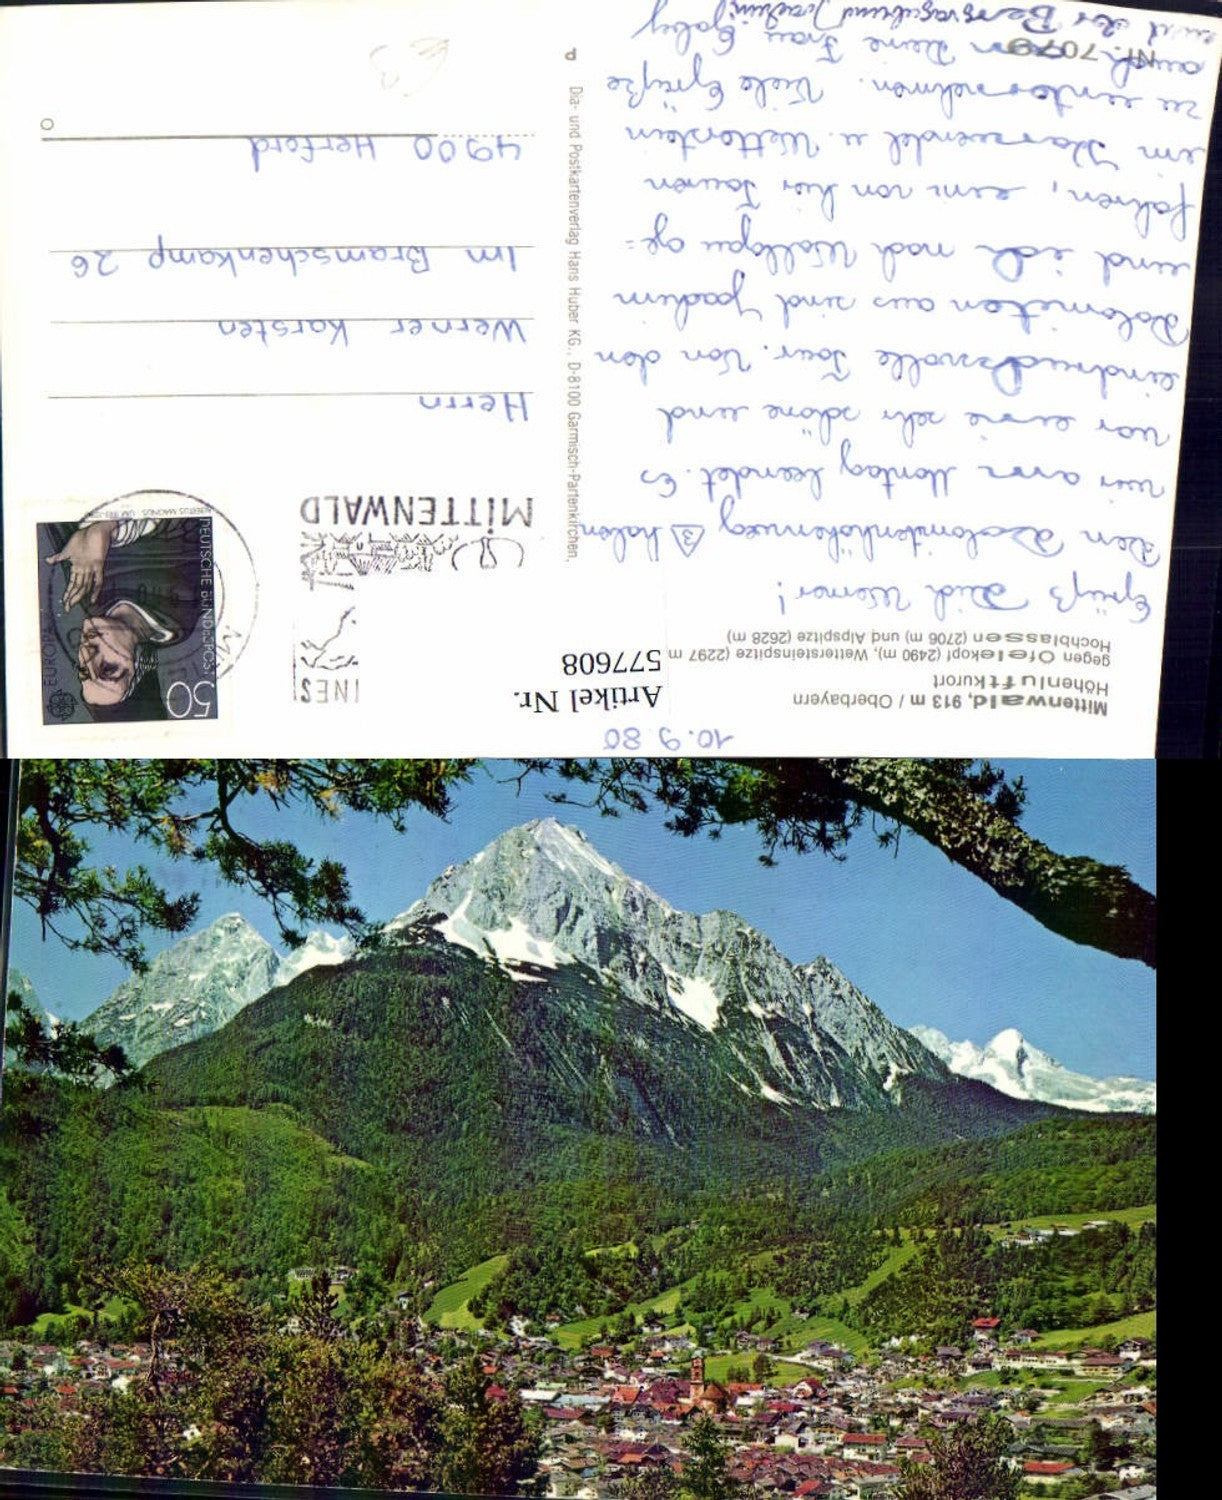 10.9.80
Mittenwald, 913 m / Oberbayern
Höhenluftkurort
gegen Öfelekopf (2490 m), Wettersteinspitze (2297 m
Hochblassen (2706 m) und Alpspitze (2628 m)
Artikel Nr.
577608
Grüß Dich Werner!
Den Dolomitenhöhenweg 3 haben
wir am Montag beendet. Es
war eine sehr schöne und
eindrucksvolle Tour. Von den
Dolomiten aus sind Joachim
und ich nach Wallgau ge=
fahren, um von hier Touren
im Karwendel u. Wetterstein
zu unternehmen. Viele Grüße
auch an Deine Frau Gaby
und der Bergvagabund Joachim
Nr. 7079
Dia- und Postkartenverlag Hans Huber KG., D-8100 Garmisch-Partenkirchen.
INES
MITTENWALD
50
DEUTSCHE BUNDESPOST
EUROPA
ALBERTUS MAGNUS
Herrn
Werner Karsten
Im Bramschenkamp 26
4900 Herford